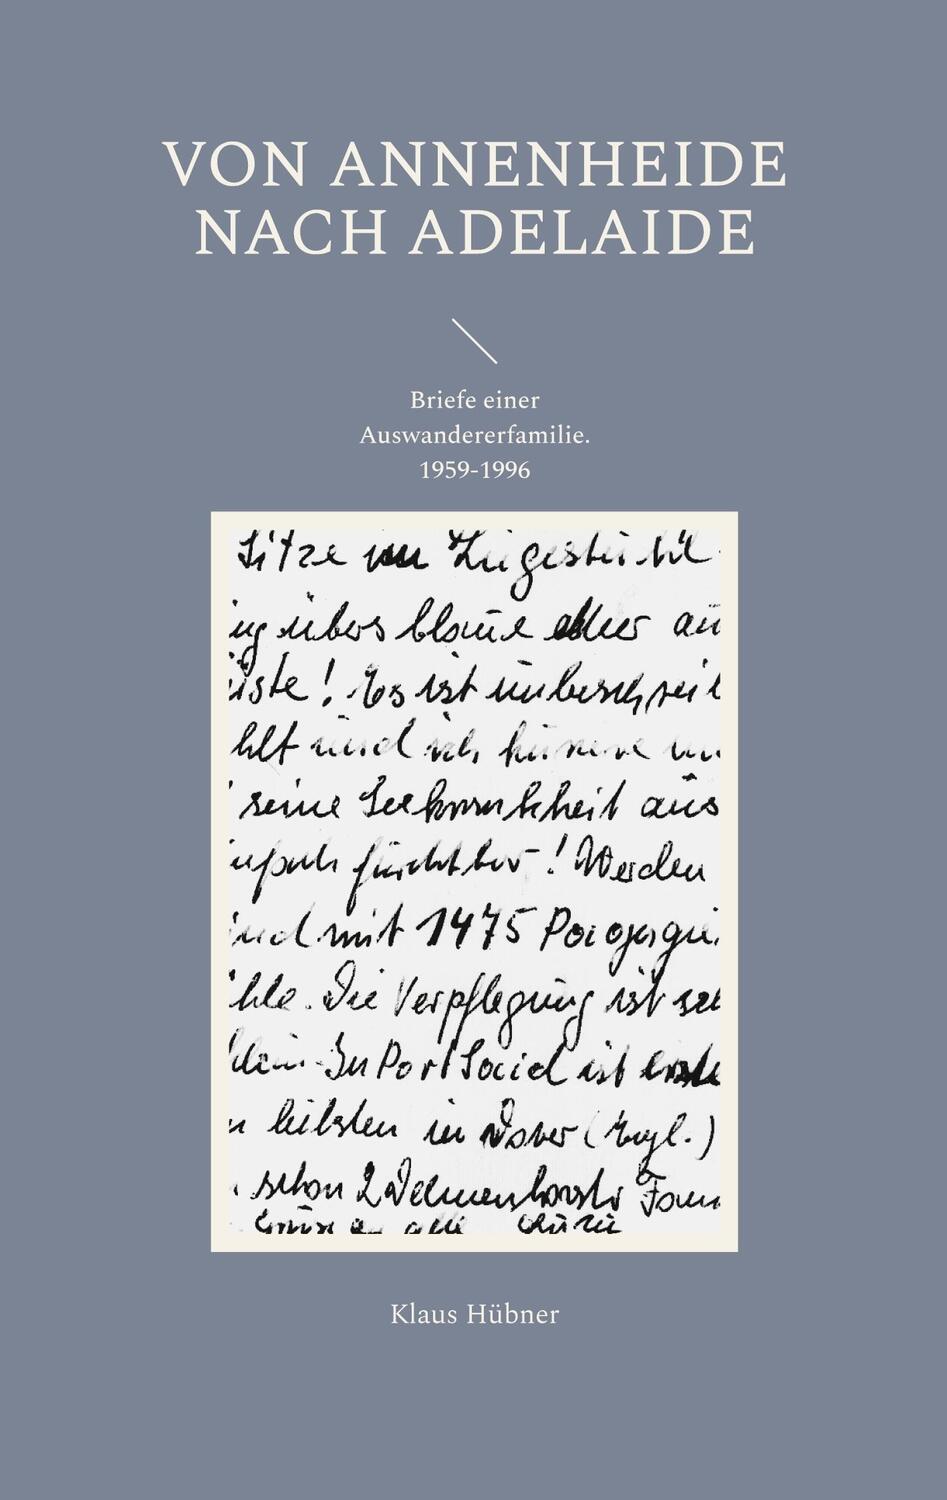 VON ANNENHEIDE
NACH ADELAIDE
Briefe einer
Auswandererfamilie.
1959-1996
Sitze im Liegestuhl
übers blaue Meer
! Es ist unbeschreib
und ich
seine Seekrankheit aus
furchtbar! Werden
und mit 1475 Passagie
. Die Verpflegung ist
klein. In Port Said ist
in Dover (Engl.)
schon 2 Delmenhorster Fam
alle
Klaus Hübner